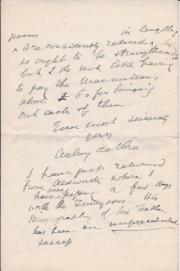 poems in length
& are considerably reduced,
so ought to be strengthened
but I do not like having
to pay the Macmillans
about £ 6 for bringing
out each of them.
Ever most sincerely
yours
Aubrey de Vere
I have just returned
from Aldworth where I
have passed a few days
with the Tennysons. His
Biography of his Father
has been an unprecedented
success